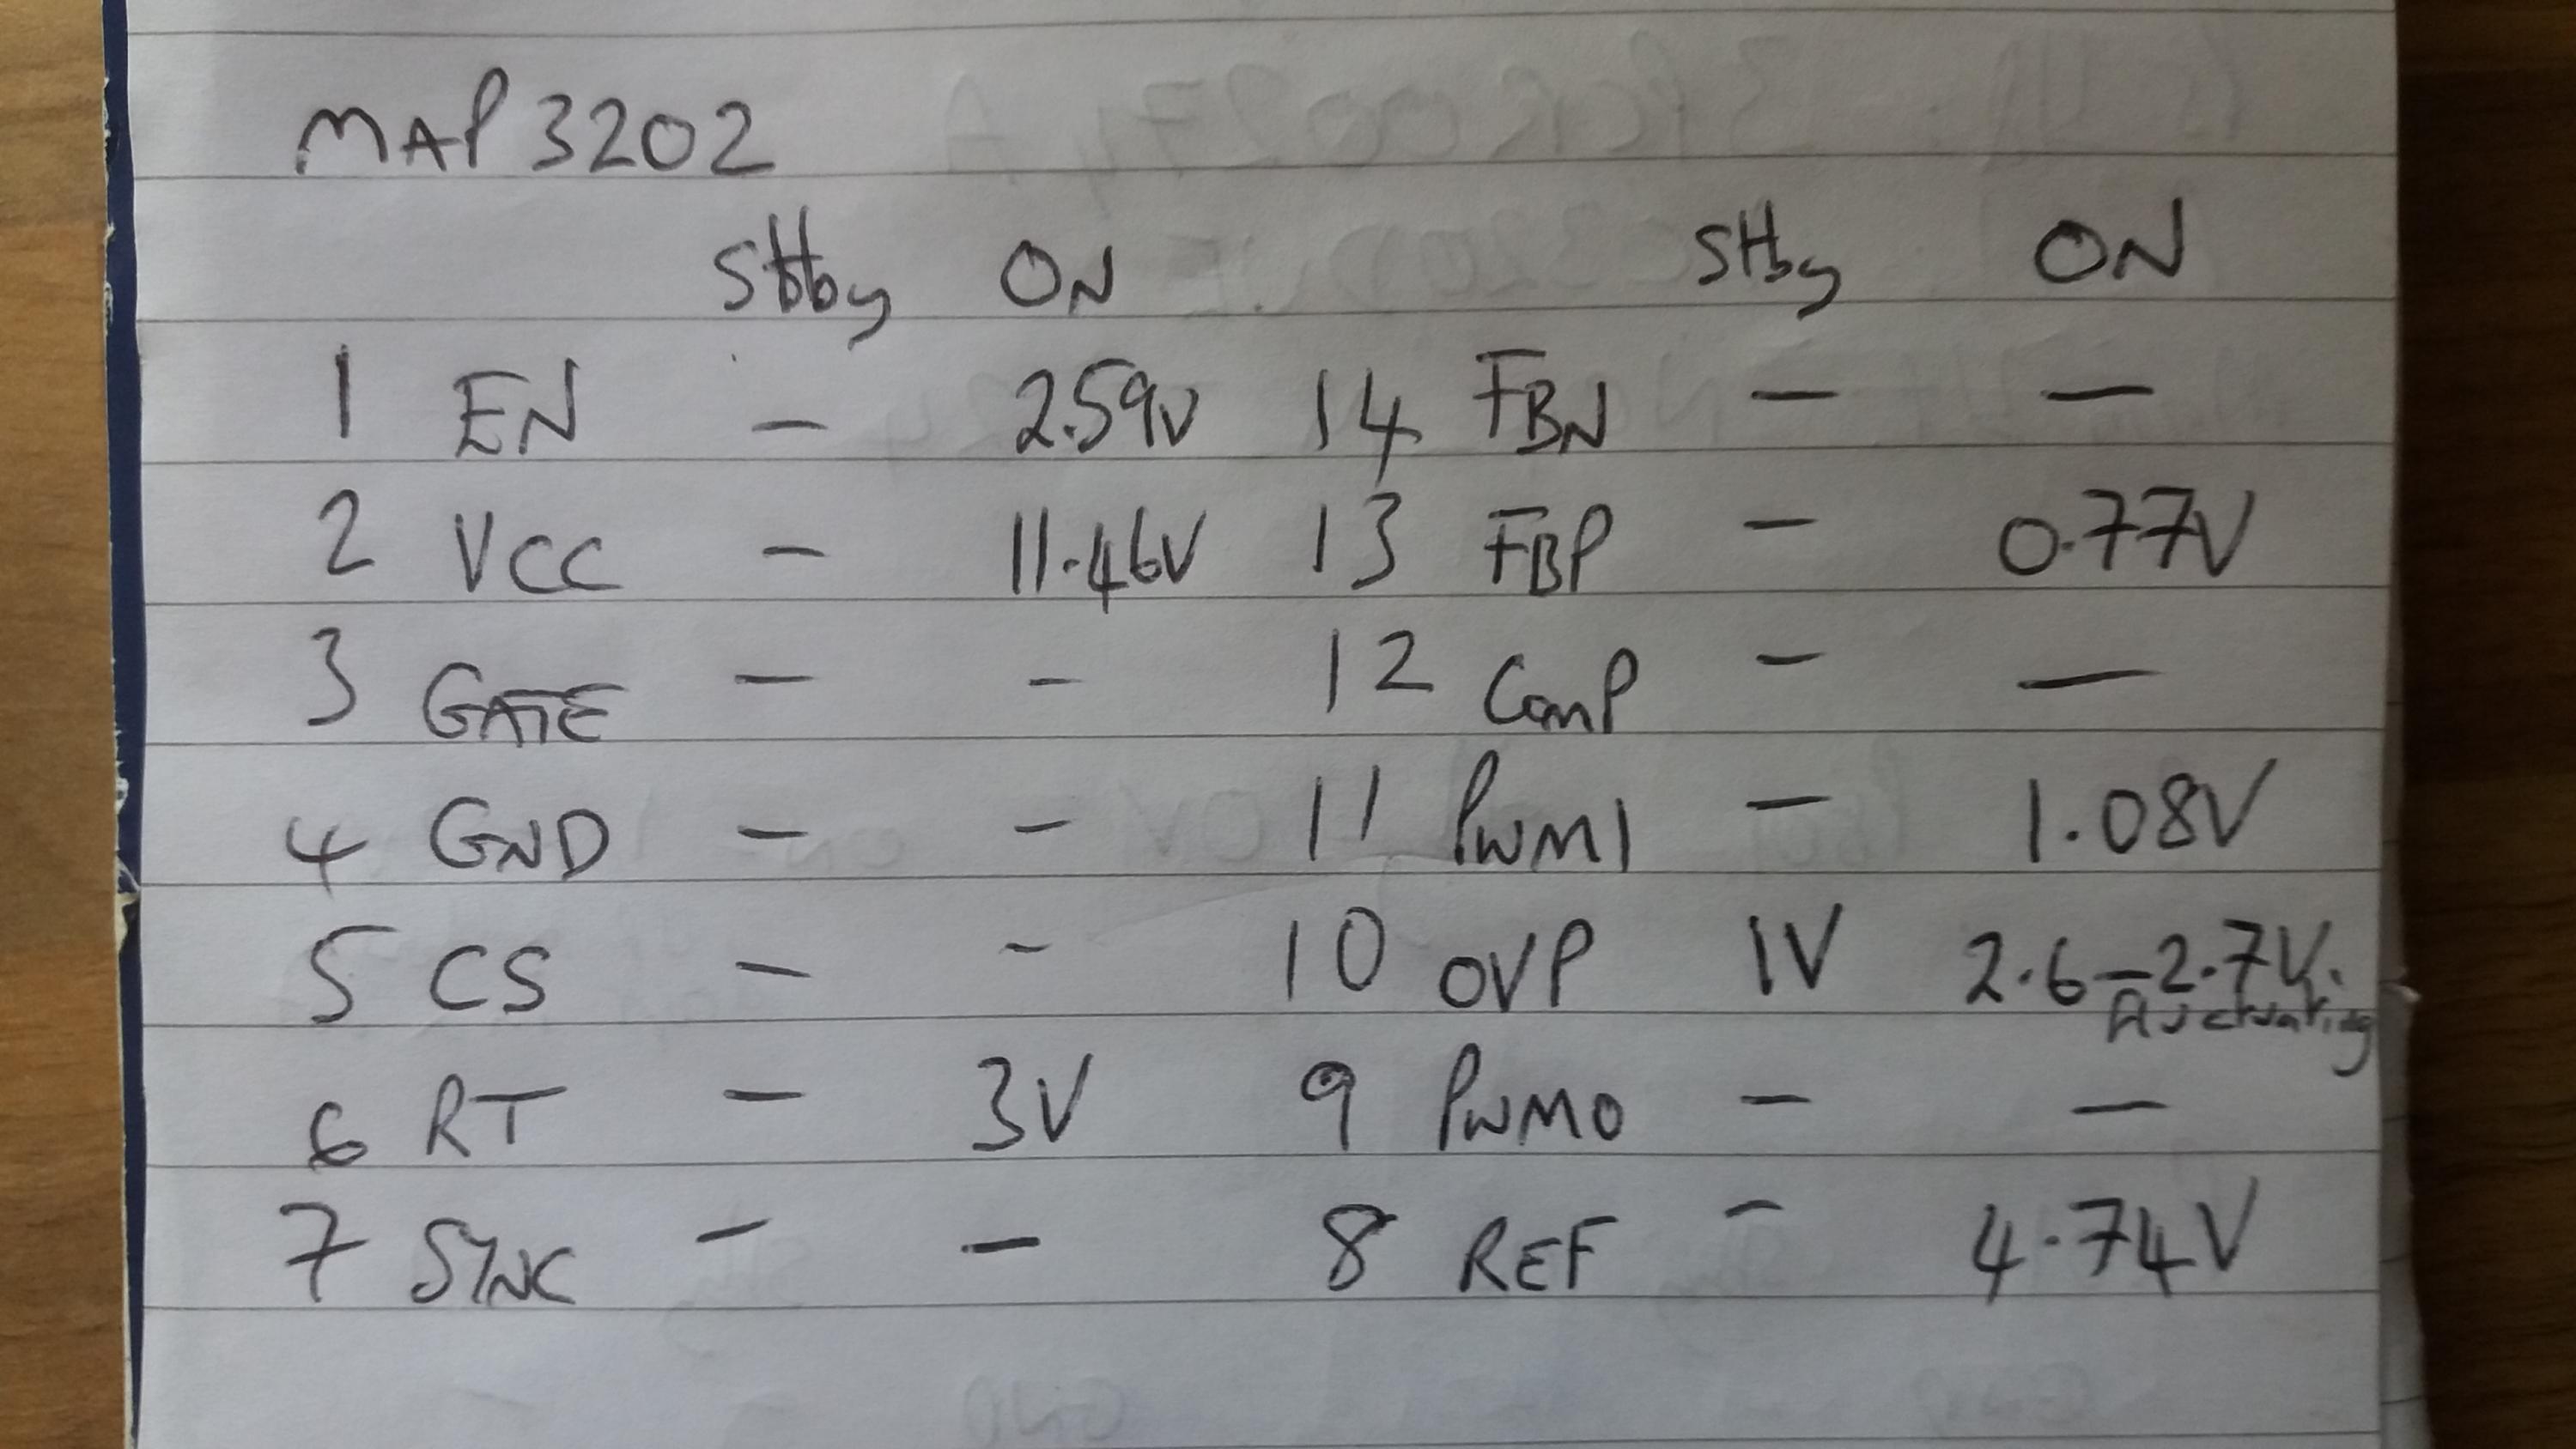 MAP 3202
Stby ON Stby ON
1 EN - 2.59V 14 FBN - -
2 VCC - 11.46V 13 FBP - 0.77V
3 GATE - - 12 COMP - -
4 GND - - 11 PWMI - 1.08V
5 CS - - 10 OVP 1V 2.6-2.7V.
fluctuating
6 RT - 3V 9 PWMO - -
7 SYNC - - 8 REF - 4.74V